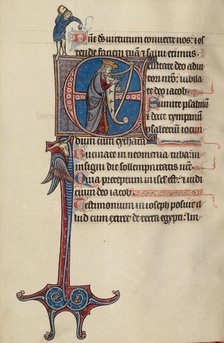 Deus virtutum converte nos: et os
tende faciem tuam et salvi erimus
Exultate deo adiu
tori nostro: iubila
te deo iacob:
Sumite psalmum
et date tympanum
psalterium iocun
dum cum cythara
Bucinate in neomenia tuba: in
insigni die sollempnitatis ve
Quia preceptum in israel est: et
deo iacob:
Testimonium in ioseph posuit il
lud cum exiret de terra egypti: lin